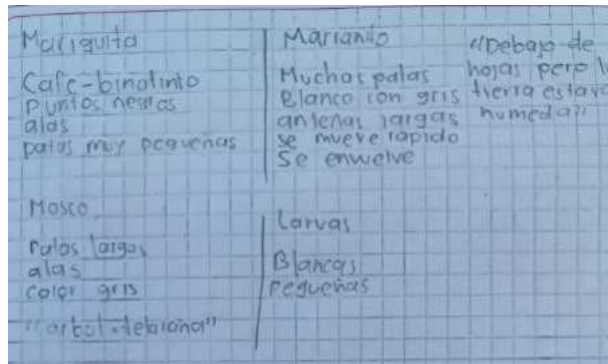 Mariquita
Cafe-binotinto
puntos negros
alas
patas muy pequeñas
Marianito
Muchas patas
Blanco con gris
antenas largas
se mueve rapido
Se envuelve
"Debajo de
hojas pero l
tierra estava
humeda"
Mosco
Patas largas
alas
color gris
"arbol
Larvas
Blancas
pequeñas